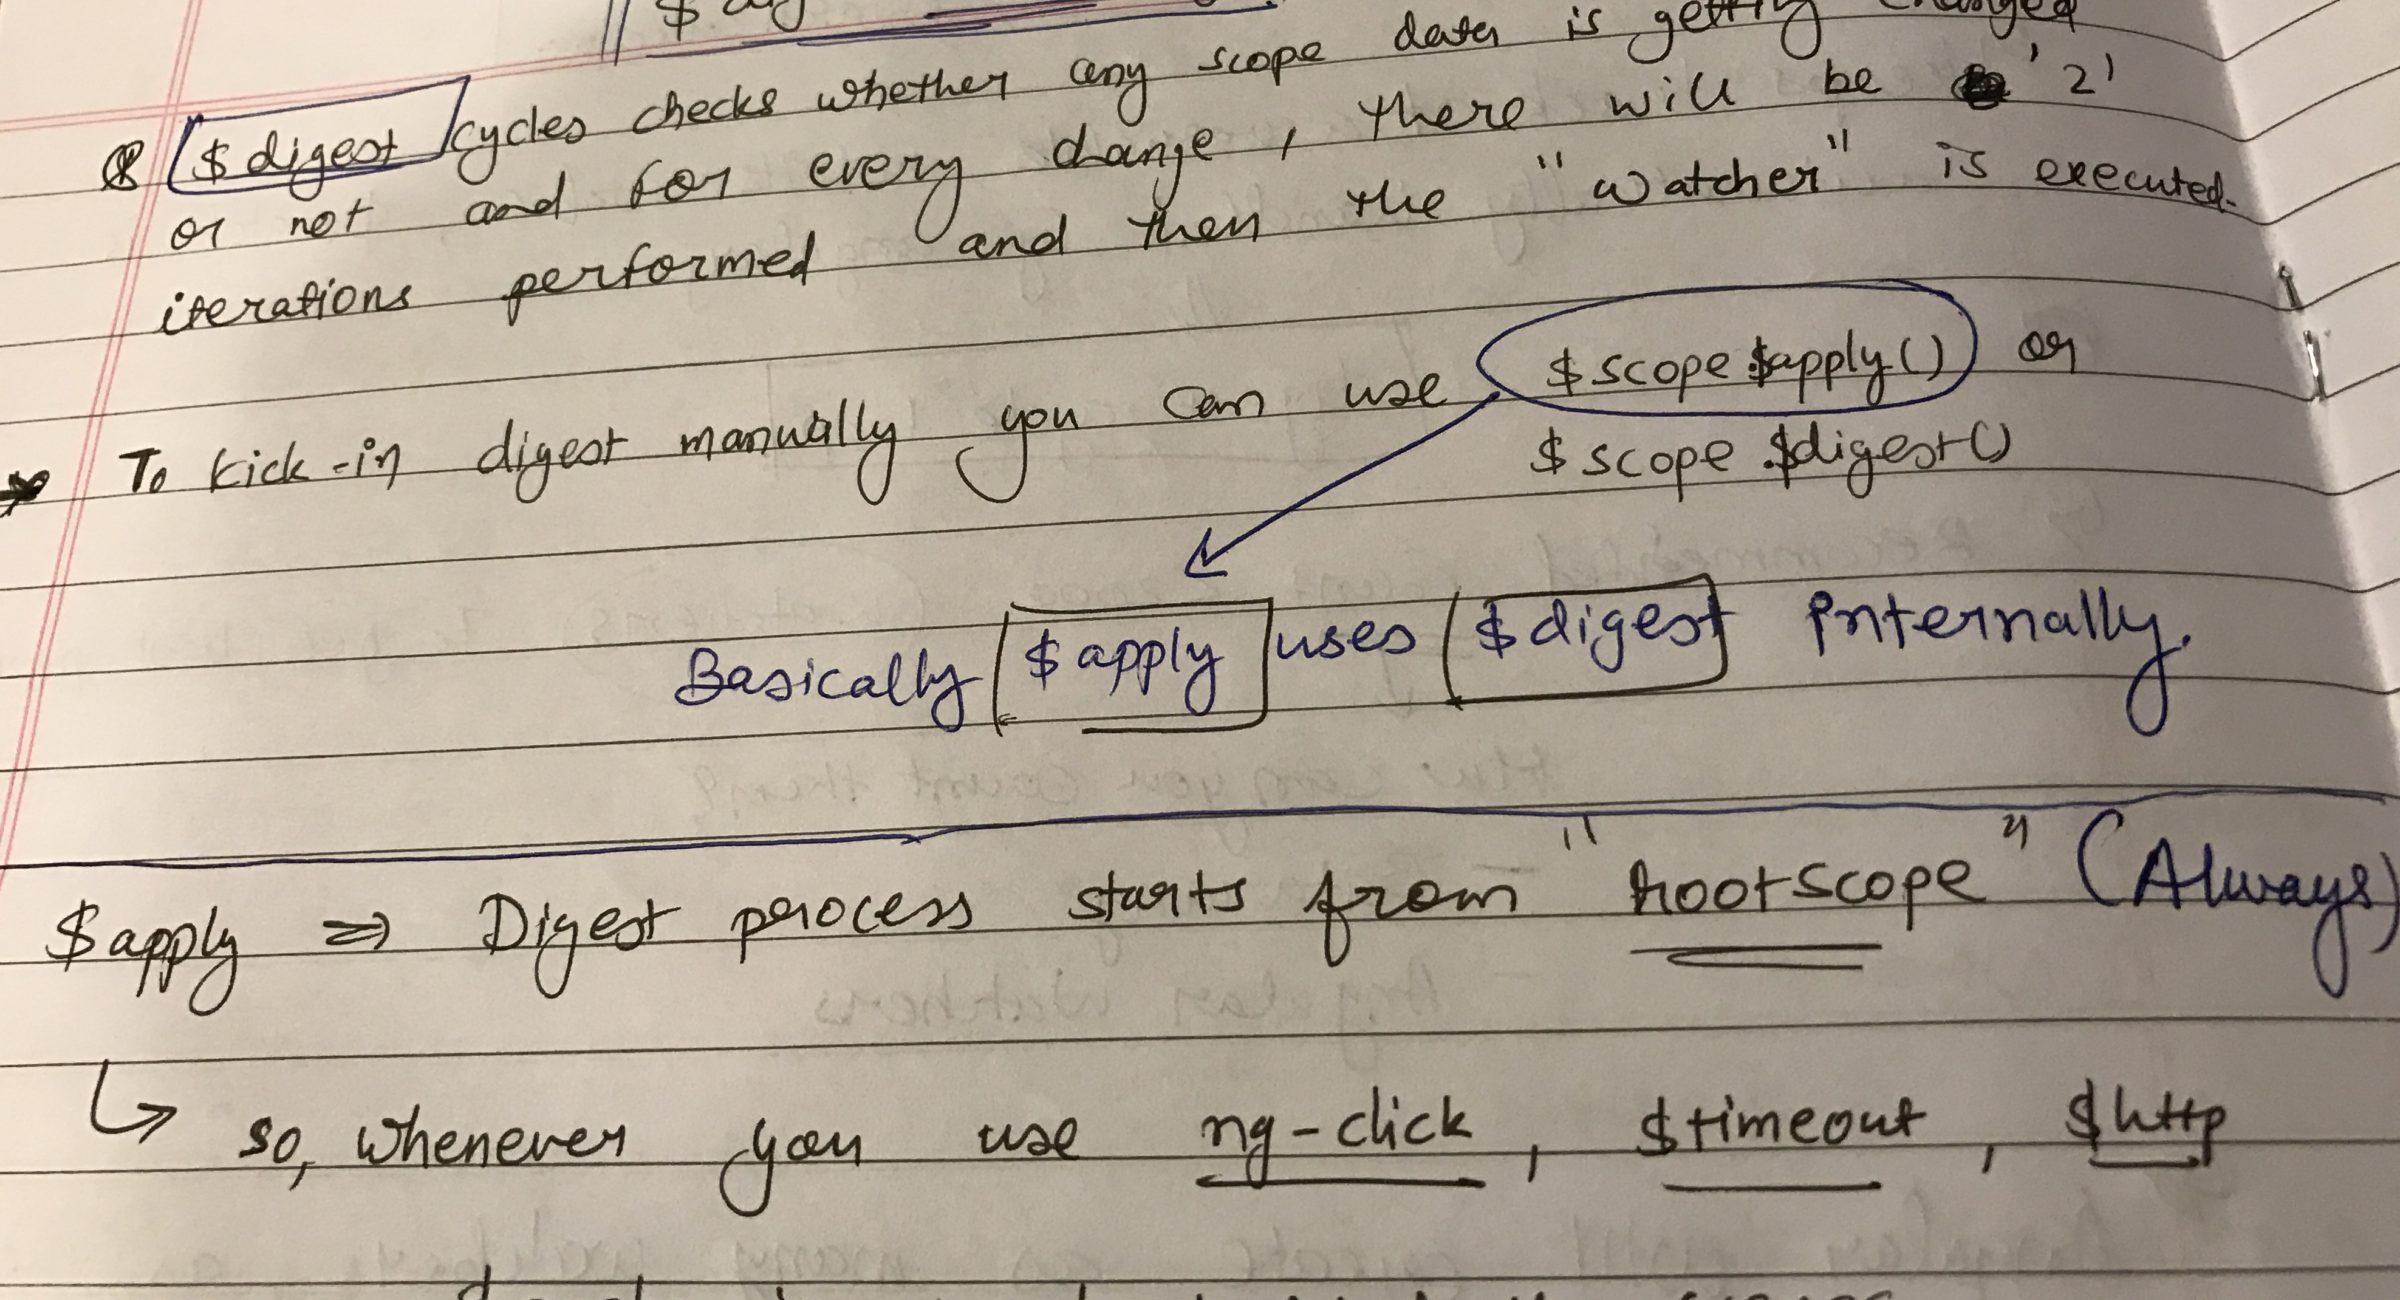 $digest cycles checks whether any scope data is getting changed
or not and for every change, there will be '2'
iterations performed and then the "watcher" is executed.
To kick-in digest manually you can use $scope.$apply() or
$scope.$digest()
Basically $apply uses $digest internally.
$apply ⇒ Digest process starts from "rootscope" (Always)
↳ so, whenever you use ng-click, $timeout, $http